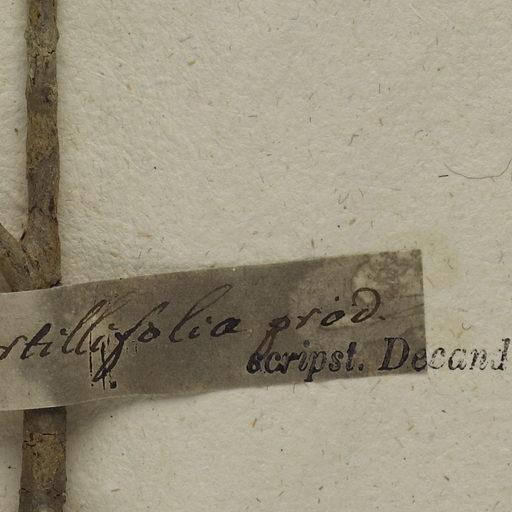 rtillifolia prod.
scripst. Decand